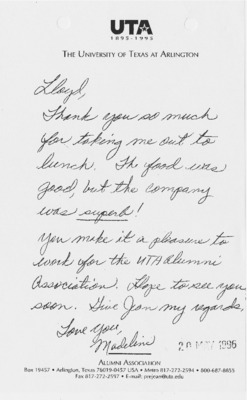 UTA
1895-1995
THE UNIVERSITY OF TEXAS AT ARLINGTON
Lloyd,
Thank you so much
for taking me out to
lunch. The food was
good, but the company
was superb!
You make it a pleasure to
work for the UTA Alumni
Association. Hope to see you
soon. Give Jan my regards,
Love you,
Madeline
1996
ALUMNI ASSOCIATION
Box 19457 • Arlington, Texas 76019-0457 USA • Metro 817-272-2594 • 800-687-8855
Fax 817-272-2597 • E-mail: prejean@uta.edu